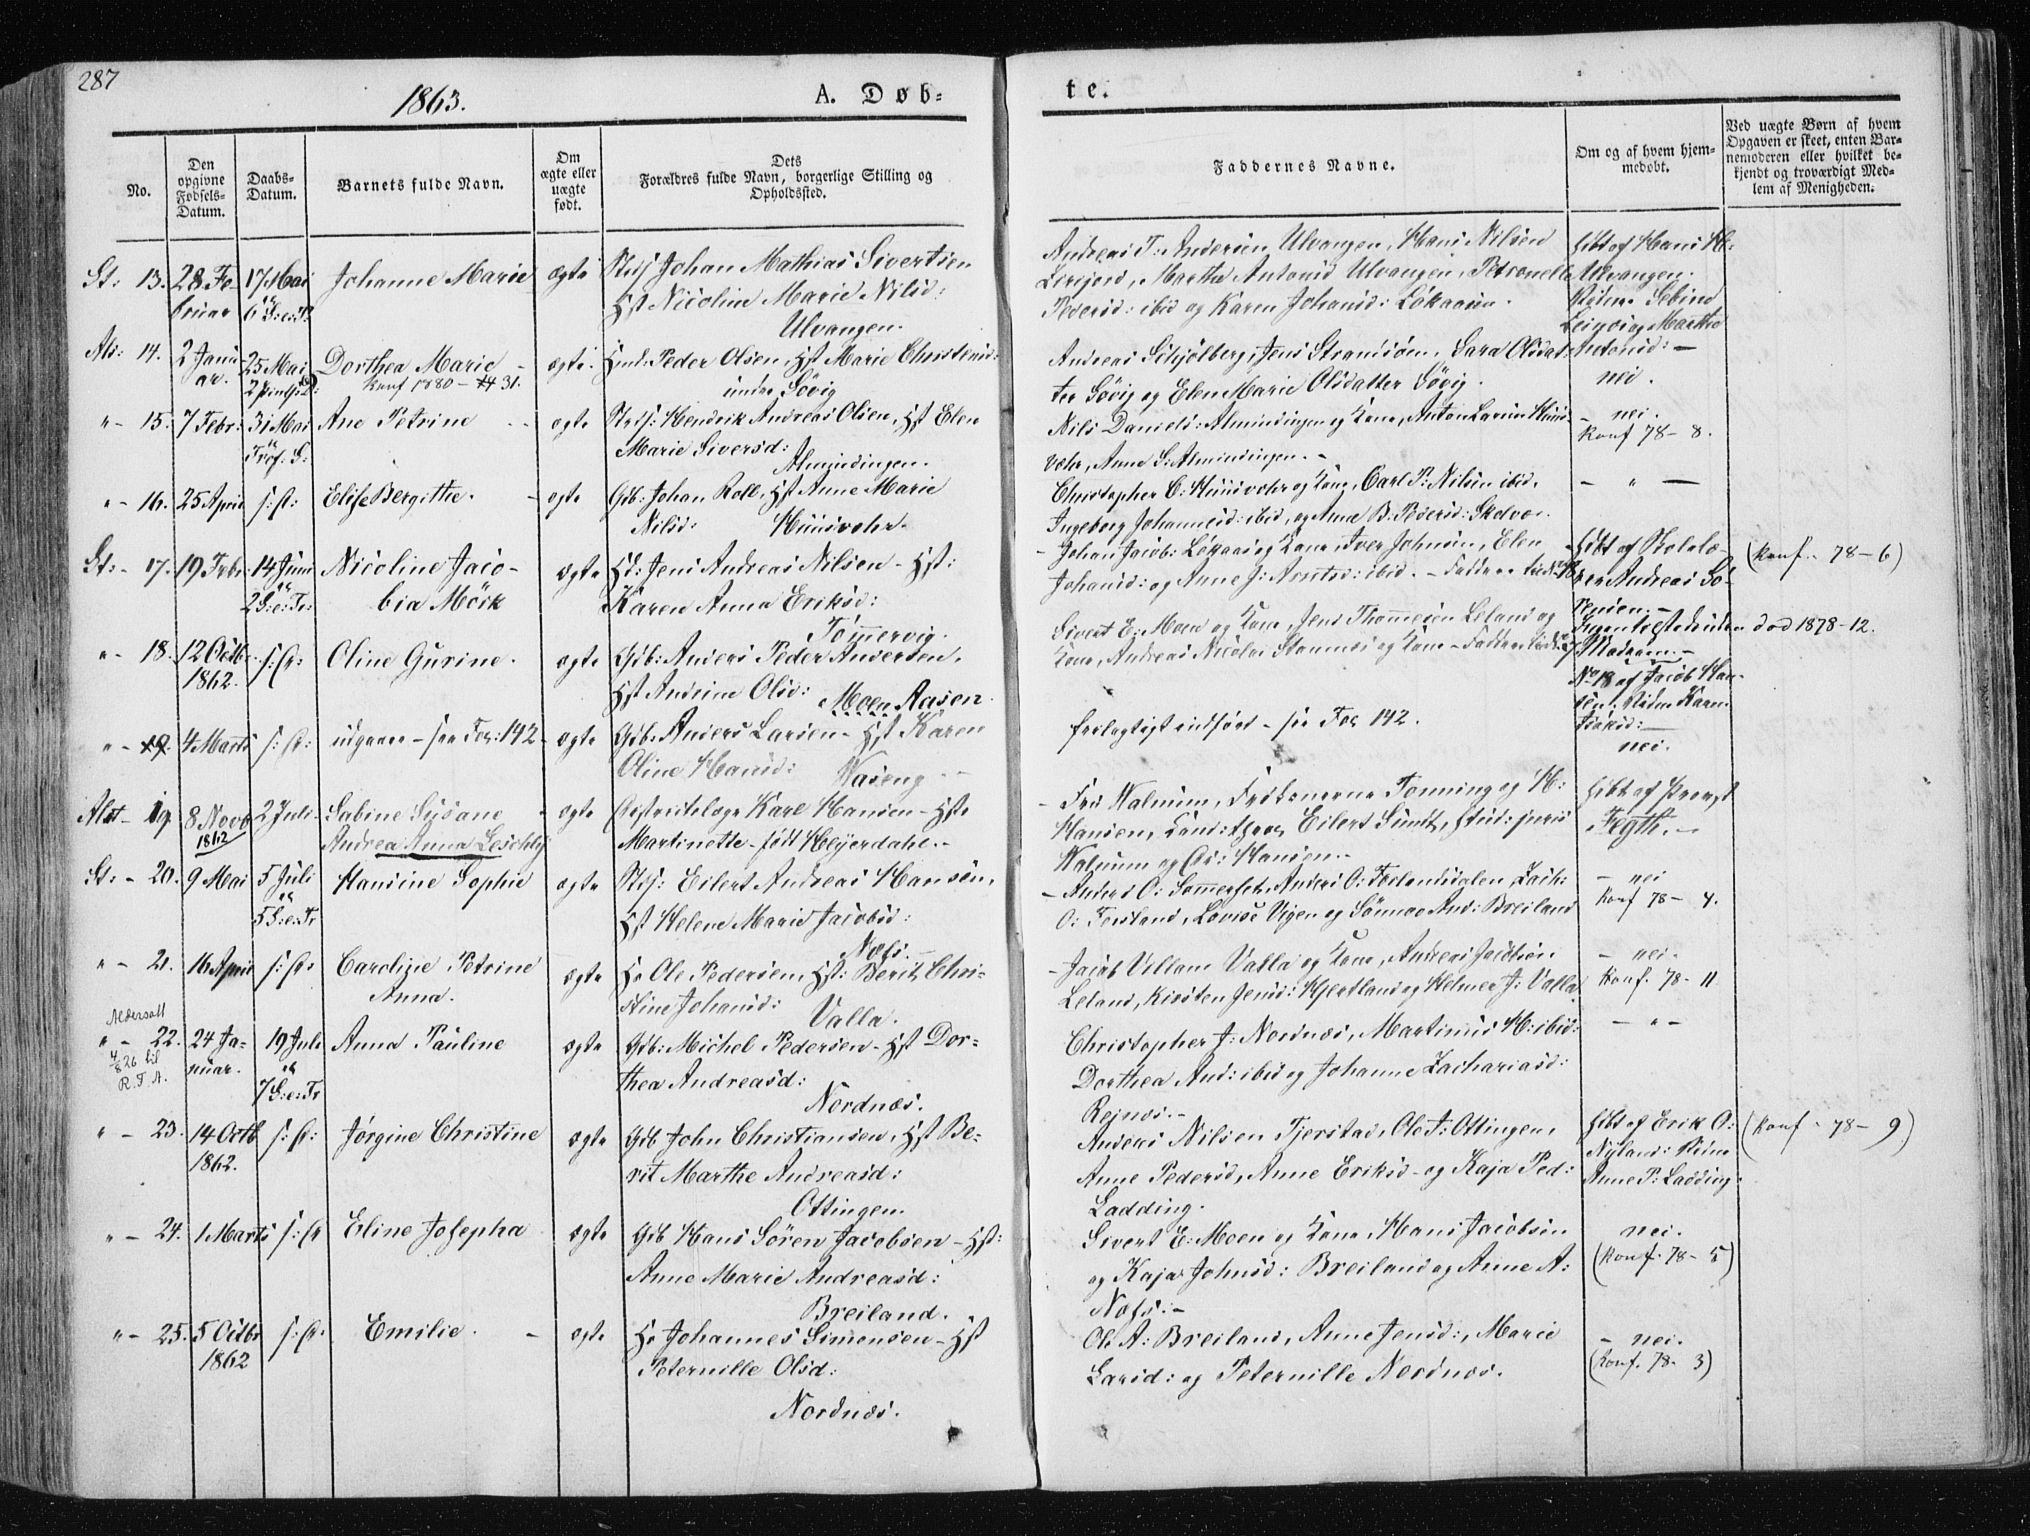 287
1863.
A. Døb-
te.
No.
Den opgivne Fødsels-Datum.
Daabs-Datum.
Barnets fulde Navn.
Om ægte eller uægte født.
Dets Forældres fulde Navn, borgerlige Stilling og Opholdssted.
Faddernes Navne.
Om og af hvem hjemmedøbt.
Ved uægte Børn af hvem Opgaven er skeet, enten Barnemoderen eller hvilket bekjendt og troværdigt Medlem af Menigheden.
St: 13. 28 Februar 17 Mai 6 S: e: P. Johanne Marie ægte Johan Mathias Sivertsen
Hst Nicoline Marie Nilsd:
Ulvangen.
Andreas T: Andersen Ulvangen, Hans Nilsen
Leerjord, Marthe Antonsd Ulvangen, Petronelle
Pedersd: ibid og Karen Johansd: Løkaasen.
Hdbt af Hans
Ulvangen.
Als: 14. 2 Januar. 25 Mai 2 Pintsed: Dorthea Marie ægte Peder Olsen, Hst Marie Christensd:
Konf 1880 - 31. indre Søvig
Andreas Schjølberg, Jens Strandsøen, Sara Olsdat-
ter Søvig og Elen Marie Olsdatter Søvig.
nei.
" - 15. 7 Febr: 31 Mai Tref. S: Ane Petrine ægte Hendrik Andreas Olsen, Hst Elen
Marie Siversd:
Almindingen.
Nils Daniels: Almindingen og Kone, Anton Larsen Huus-
væhr, Anne S: Almindingen.
- nei.
Konf 78 - 8.
" - 16. 25 April s: D: Elise Bergithe. ægte Gdb: Johan Roll, Hst Anne Marie
Nilsd: Huusvæhr.
Christopher C: Huusvæhr og Kone, Carl P: Nilsen ibid,
Ingeborg Johannesd: ibid, og Anne B. Pedersd:
- " -
St: - 17. 19 Febr: 14 Juni 2 S: e: Tr: Nicoline Jaco-
bia Mörk ægte Hd: Jens Andreas Nilsen - Hst:
Karen Anna Eriksd:
Tømmervig.
Johan Jacob: Løkaas og Kone, Iver Johnsen, Elen
Johansd: og Anne J: Arntsd: ibid.
Hdbt af Skolelæ-
rer Andreas
(Konf. 78 - 6)
" - 18. 12 Octbr 1862. s: D: Oline Gurine. ægte Gdb: Anders Peder Andersen,
Hst Andrine Olsd: Moen Aasen.
Sivert E: Moen og Kone, Jens Thommesen Leland og
Kone, Andreas Nicolai og Kone
død 1878-12.
No 18 af Jacob Han-
sen. Karen
nei.
" - 19. 4 Marts s: D: udgaar - see Fol: 142 ægte Gdb: Anders Larsen - Hst Karen
Oline Hansd:
feilagtigt indført - see Fol 142.
Alst - 19 8 Novb 1862 2 Juli Sabine Susane
Andrea Anna Leschly ægte Districtslæge Karl Hansen - Hst
Martinette - født Heyerdahl.
Fru Walnum, Frøknerne Tonning og H:
Hansen, Eilert Sundt, stud: juris
Walnum og Hansen.
Hdbt af Provst
St: - 20. 9 Mai 5 Juli 5 S: e: Tr Hansine Sophie ægte Eilert Andreas Hansen,
Hst Helene Marie Jacobsd:
Næfs.
Anders O: Sommerset, Anders O: Forslandsdalen, Zach:
O: Forsland, Lovise Vigen og Sönnov And: Breiland
- nei
Konf 78 - 4.
" - 21. 16 April s: D: Caroline Petrine
Anna. ægte Ho Ole Pedersen, Hst: Berit Chri-
stine Johansd:
Valla.
Jacob Vellum Valla og Kone, Andreas Jacobsen
Leland, Kirsten Jensd: Hjertland og Helmer J: Valla
- nei.
Konf. 78 - 11
Aldersatt
4/8 26 til
R.T.A.
" - 22. 24 Januar. 19 Juli 7 S: e: Tr Anna Pauline ægte Gdb: Michel Pedersen - Hst Dor-
thea Andreasd:
Nordnæs.
Christopher J: Nordnæs, Martinus H: ibid:
Dorthea And: ibid og Johanne Zachariasd:
Rejnæs.
- " -
" - 23. 14 Octb 1862. s: D: Jørgine Christine ægte Gdb John Christiansen, Hst Be-
rit Marthe Andreasd:
Ottingen.
Anders Nilsen Tjerstad, Ole A: Ottingen,
Anne Pedersd, Anne Eriksd - og Kaja Ped:
Ladding.
Hdbt af Erik O:
Nyland:
Anne P: Ladding:
(Konf - 78 - 9)
" - 24. 1 Marts s: D Eline Josepha ægte Gdb Hans Sören Jacobsen - Hst:
Anne Marie Andreasd:
Breiland.
Sivert E: Moen og Kone, Hans Jacobsen
og Kaja Johnsd: Breiland og Anne A:
Næfs:
nei.
(Konf. 78 - 5)
" - 25. 5 Octbr 1862 s: D. Emilie. ægte Ho Johannes Simonsen - Hst
Peternille Olsd:
Nordnæs.
Ole A: Breiland, Anne Jensd:, Marie
Larsd: og Peternille Nordnæs.
- nei.
(Konf. 78. 3)